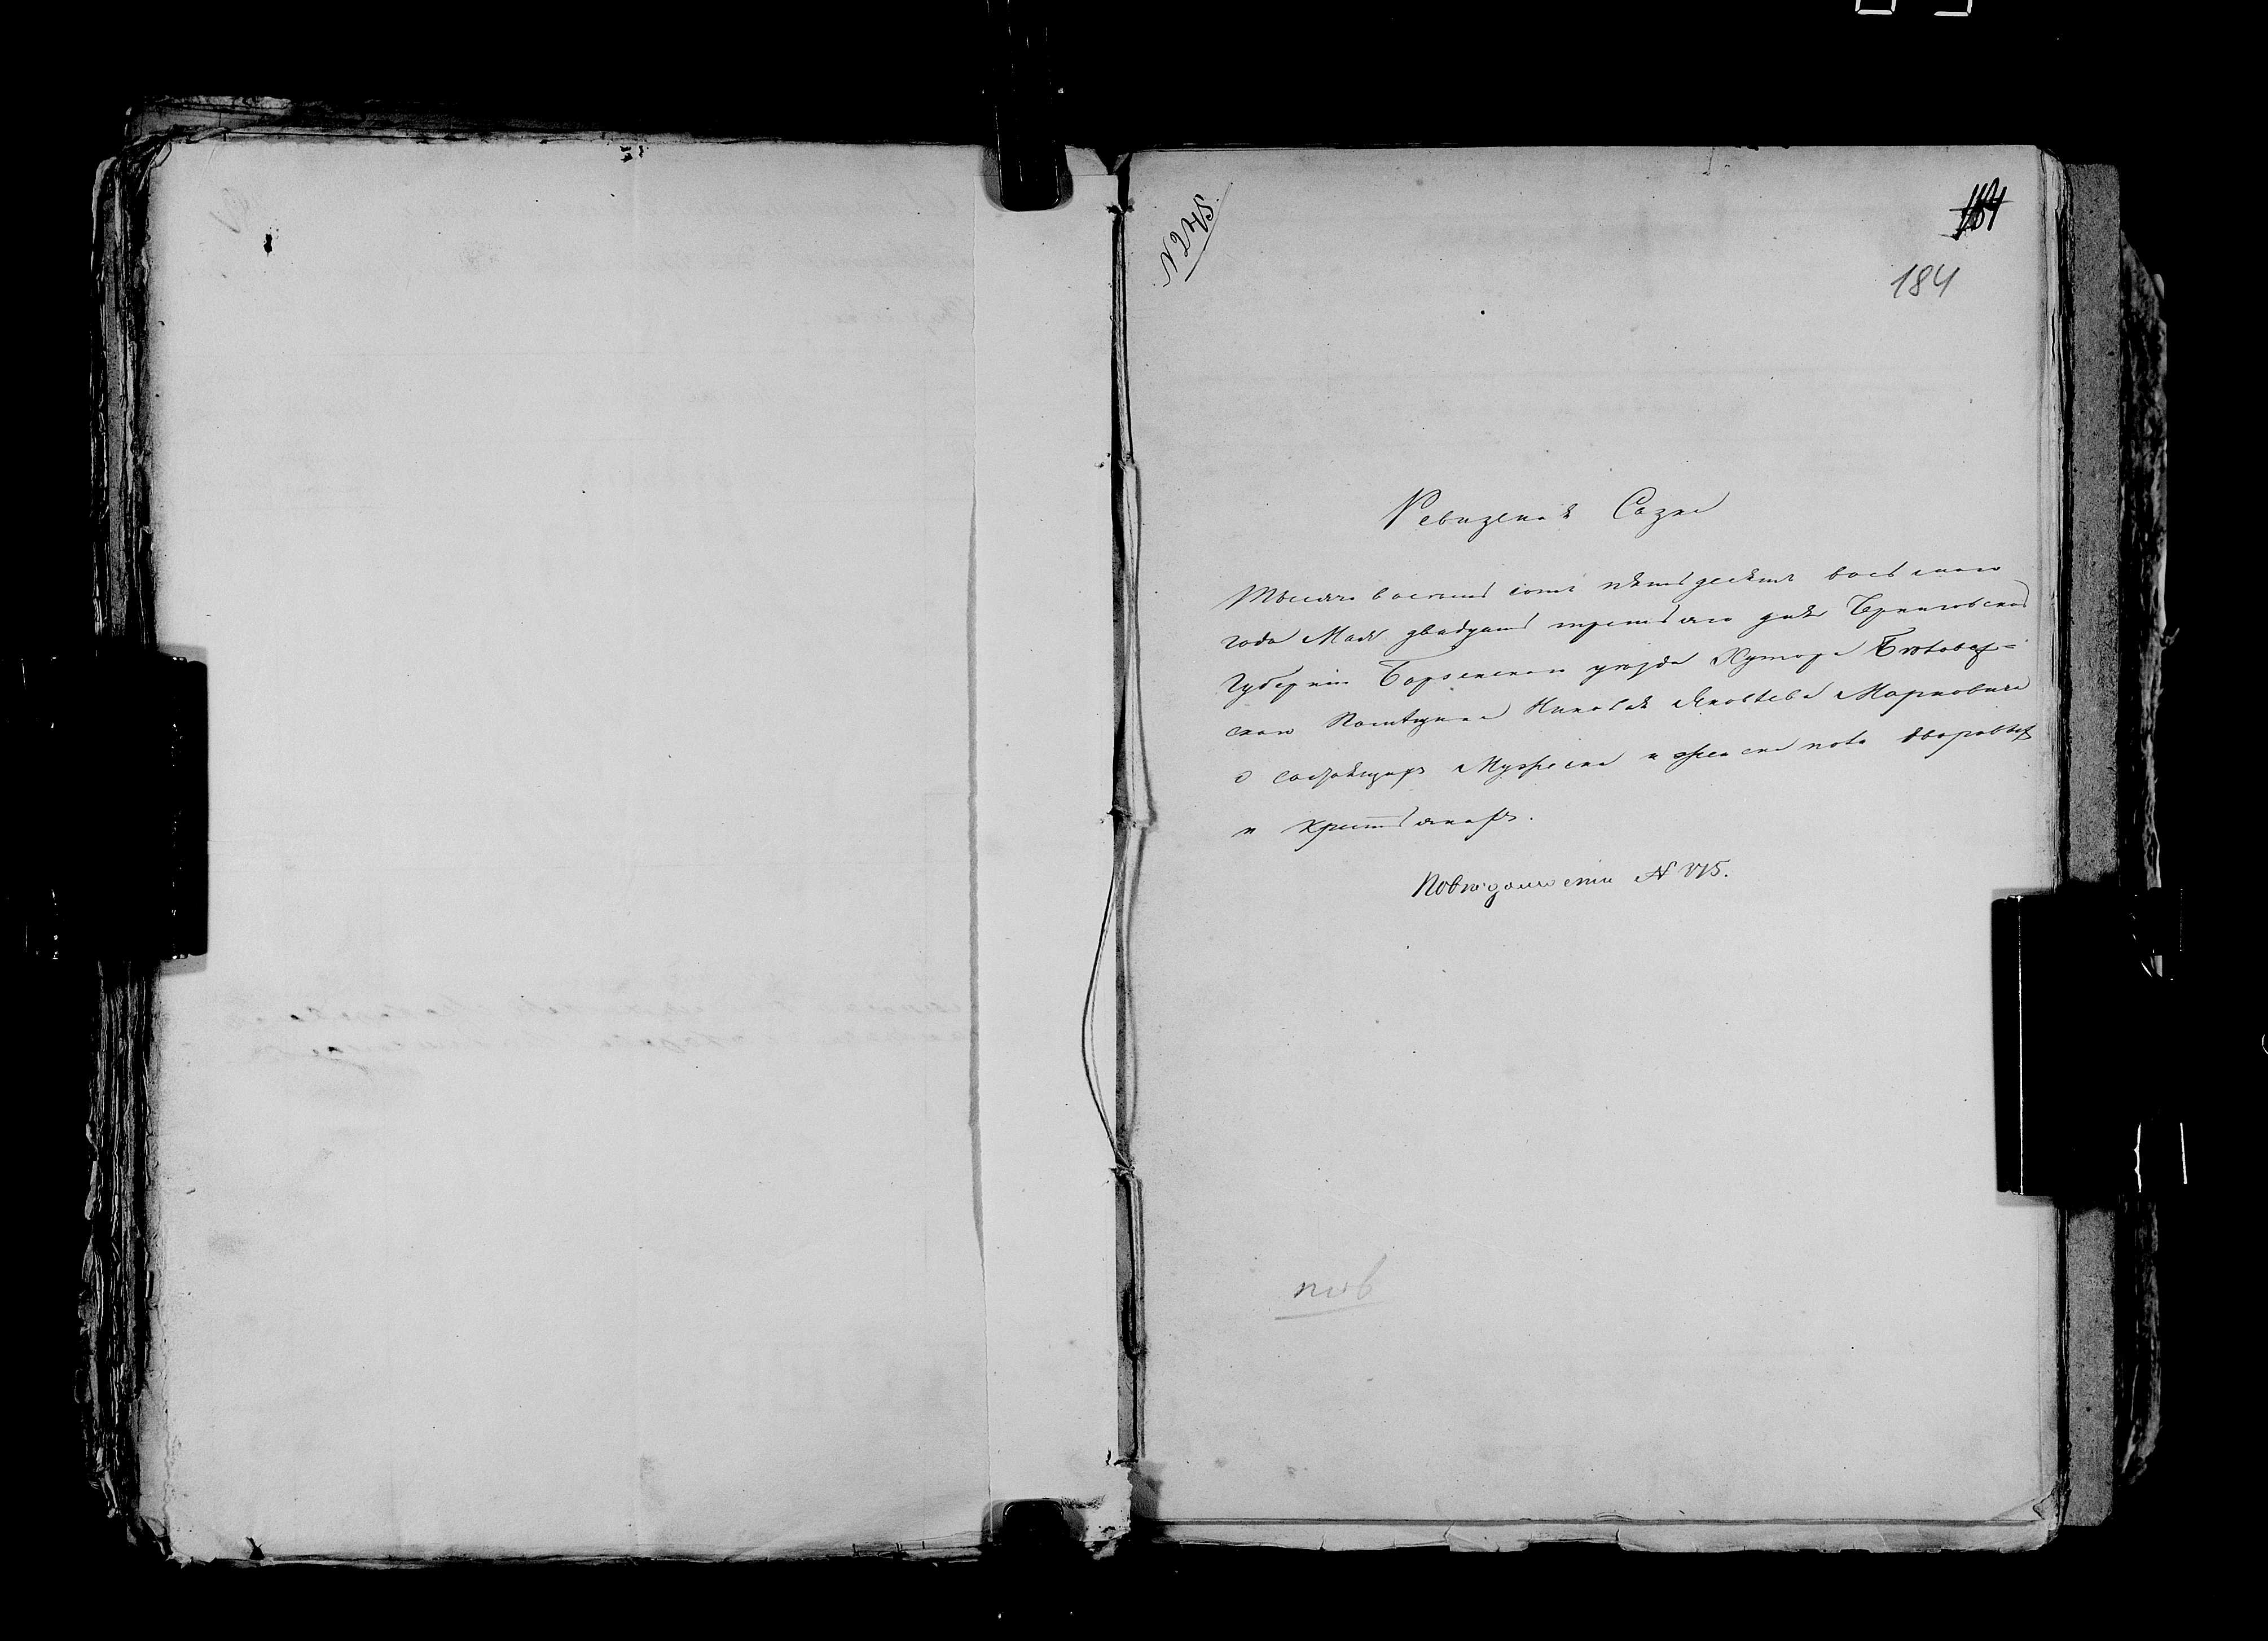 N 245.
184
Ревизская Сказка
Тысяча восемь сотъ пятьдесятъ восьмого
года Мая двадцать третьяго дня Черниговской
Губерніи Борзенскаго уѣзда Хутора
скаго Помѣщика Николая Яковлева Марковича
о состоящихъ Мужеска и женска пола дворовыхъ
и крестьянахъ.
По вѣдомости N